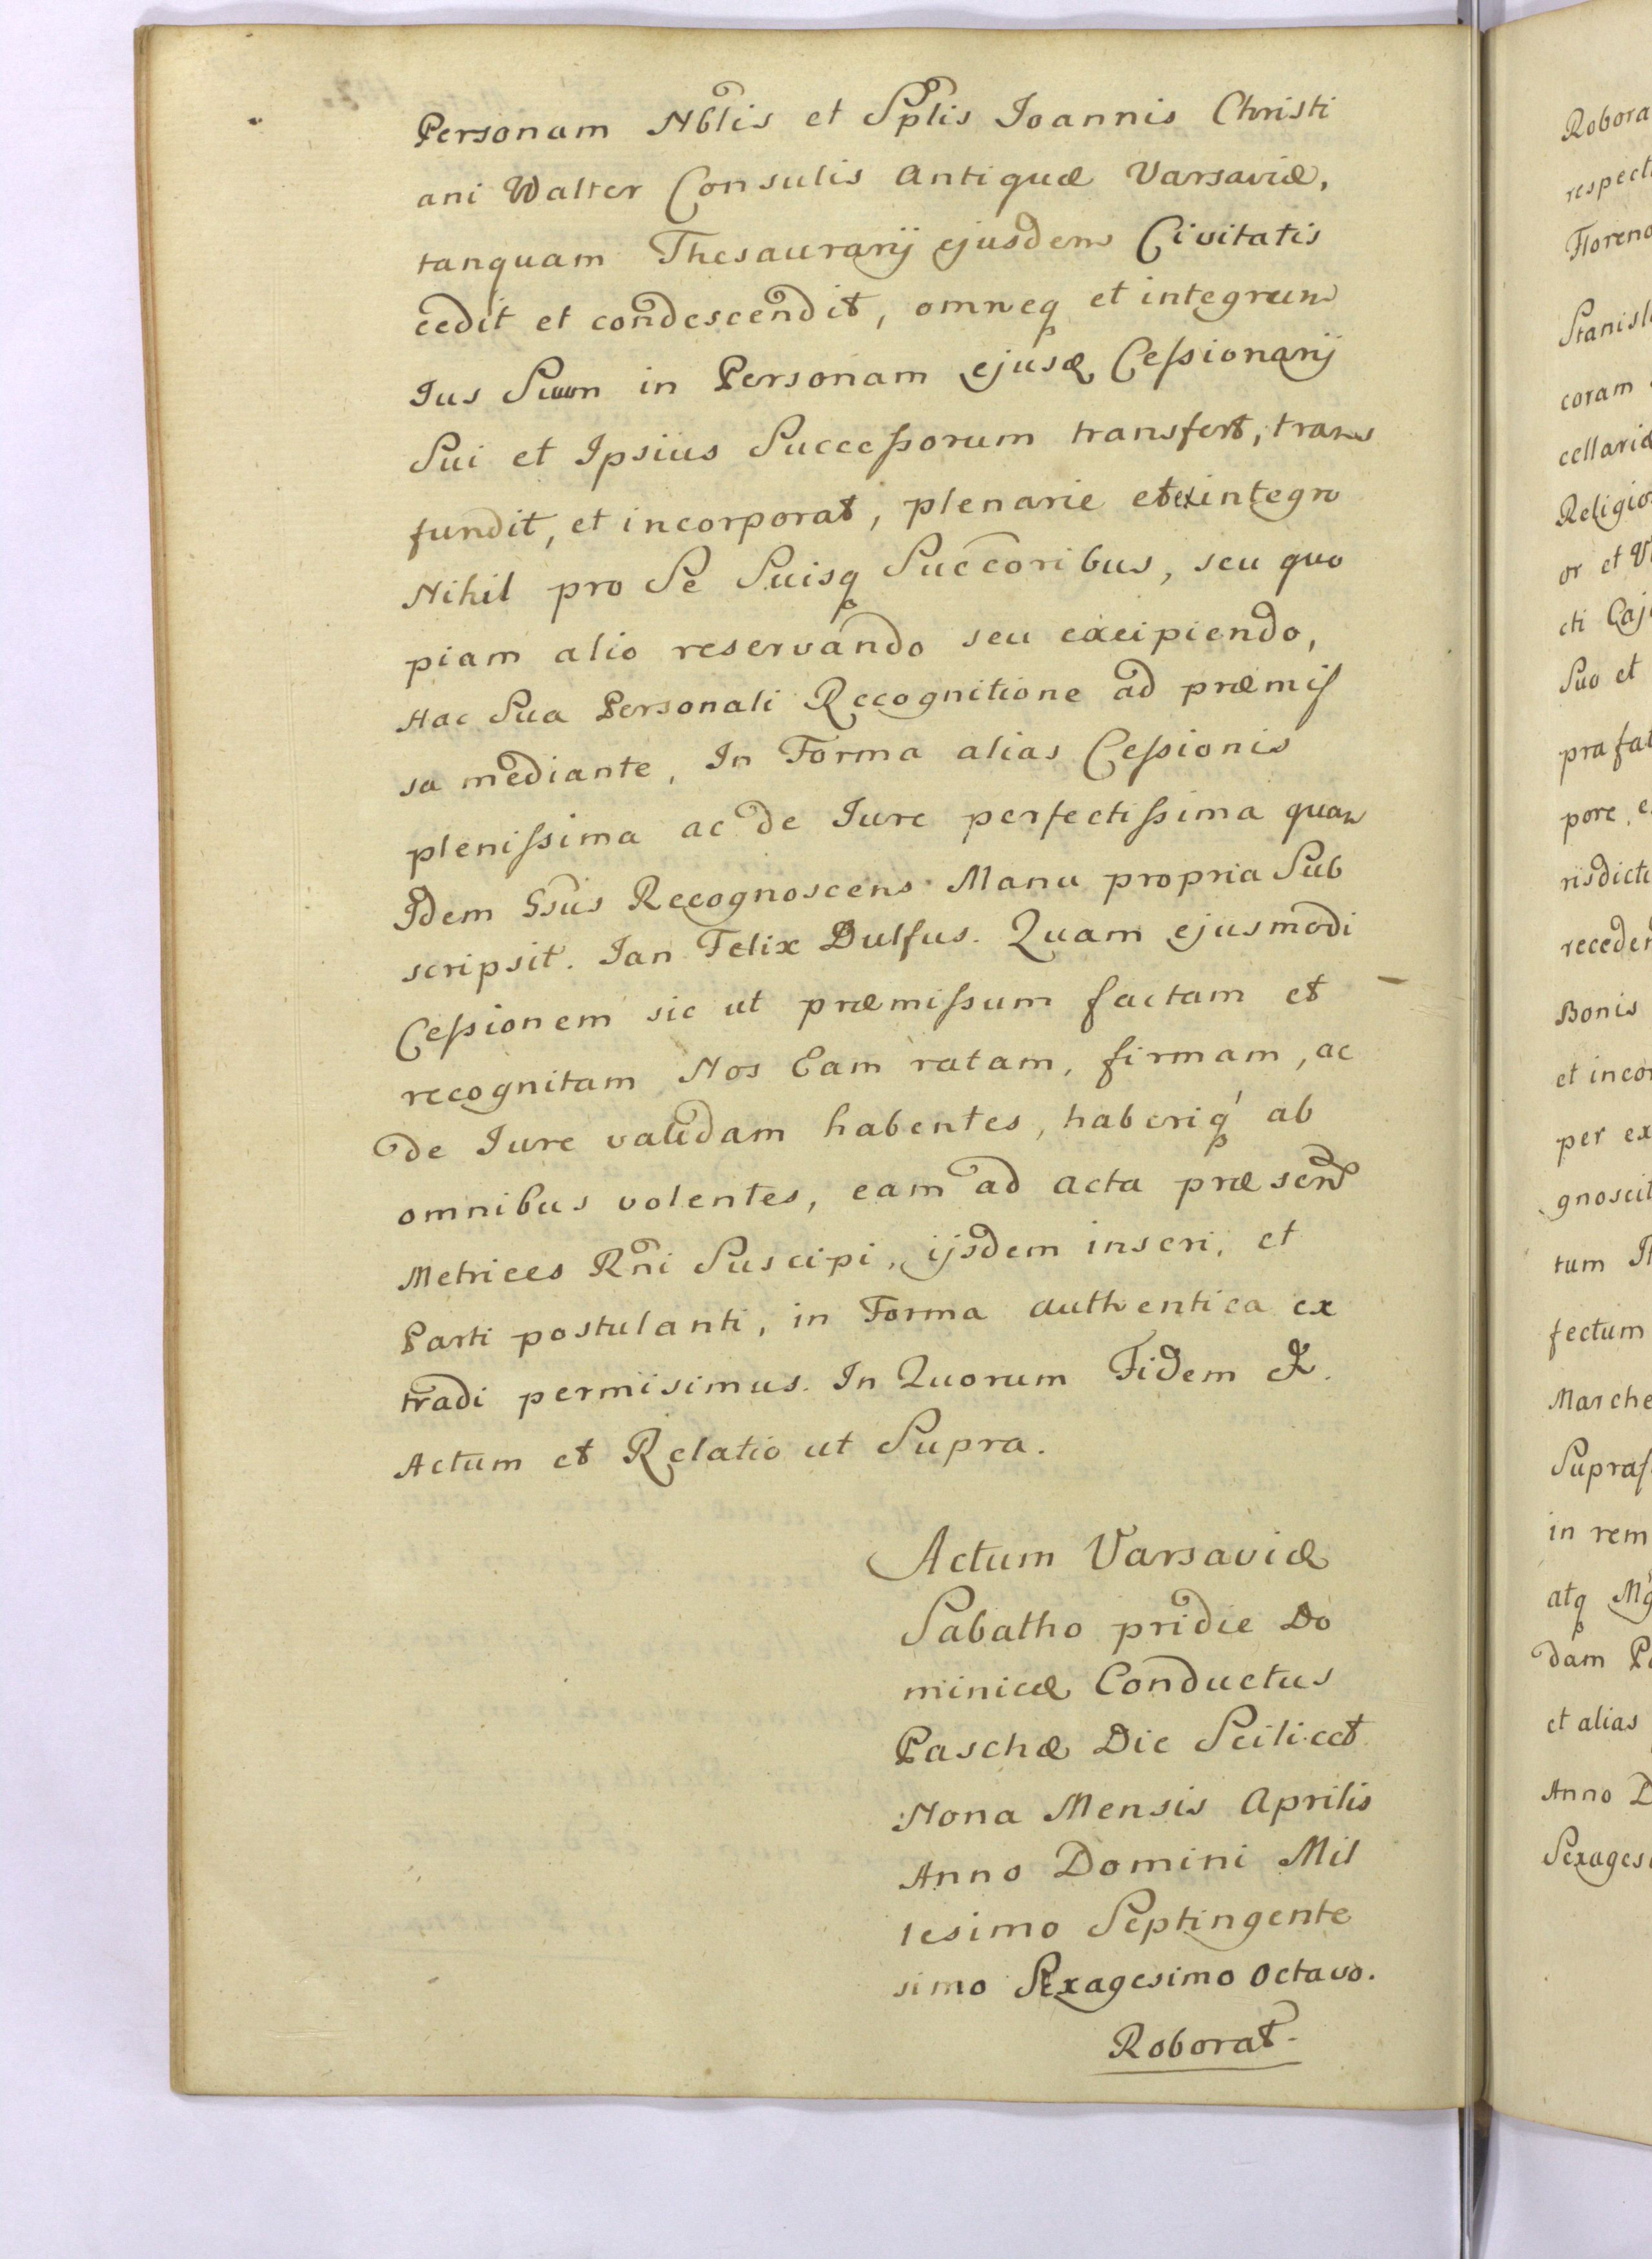 Personam Nblis et Splis Ioannis Christi
ani Walter Consulis Antiquæ Varsaviæ,
tanquam Thesaurarij ejusdem Civitatis
cedit et condescendit, omneq et integrum
Ius Suum in Personam ejusq Cessionarij
Sui et Ipsius Successorum transfert, trans
fundit, et incorporat, plenarie et ex integro
Nihil pro Se Suisq Succoribus, seu quo
piam alio reservando seu excipiendo,
Hac Sua Personali Recognitione ad præmis
sa mediante, In Forma alias Cessionis
plenissima ac de Iure perfectissima quam
Idem Ssus Recognoscens Manu propria Sub
scripsit. Ian Felix Dulfus. Quam ejusmodi
Cessionem sic ut præmissum factam et
recognitam Nos Eam ratam, firmam, ac
de Iure validam habentes, haberiq ab
omnibus volentes, eam ad acta præsen
Metrices Rni Suscipi, ijsdem inseri, et
Parti postulanti, in Forma authentica ex
tradi permisimus. In Quorum Fidem &.
Actum et Relatio ut Supra.
Actum Varsaviæ
Sabatho pridie Do
minicæ Conductus
Paschæ Die Scilicet
Nona Mensis Aprilis
Anno Domini Mil
lesimo Septingente
simo Sexagesimo Octavo.
Roborat
Robora
respect
Floreno
Stanisl
coram
cellariæ
Religio
or et V
cti Caj
Suo et
præfat
pore, e
risdicti
receden
Bonis
et incor
per ex
gnoscit
tum
fectum
Marche
Supras
in rem
atq
dam
et alias
Anno D
Sexages